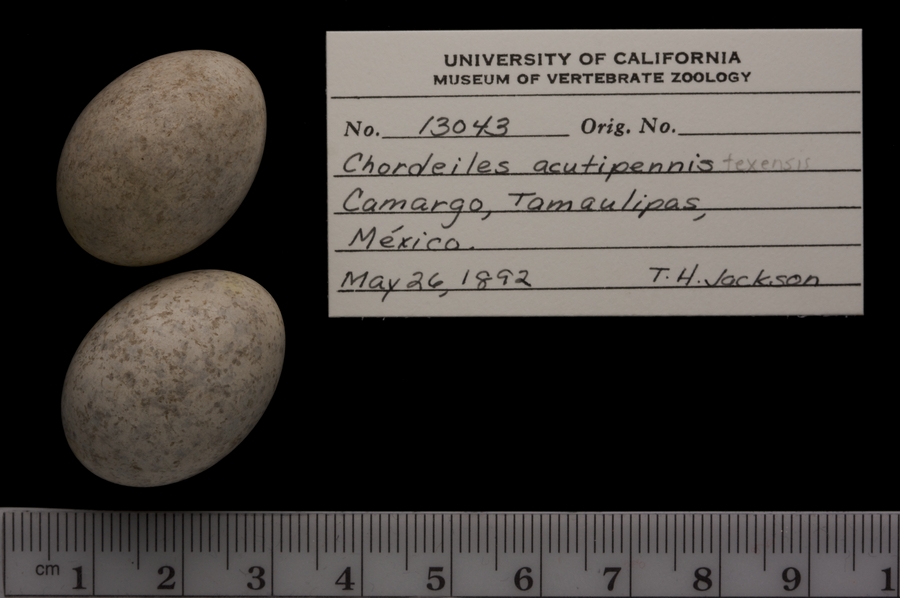 UNIVERSITY OF CALIFORNIA
MUSEUM OF VERTEBRATE ZOOLOGY
No. 13043 Orig. No.
Chordeiles acutipennis texensis
Camargo, Tamaulipas,
México.
May 26, 1892 T. H. Jackson
cm 1 2 3 4 5 6 7 8 9 1